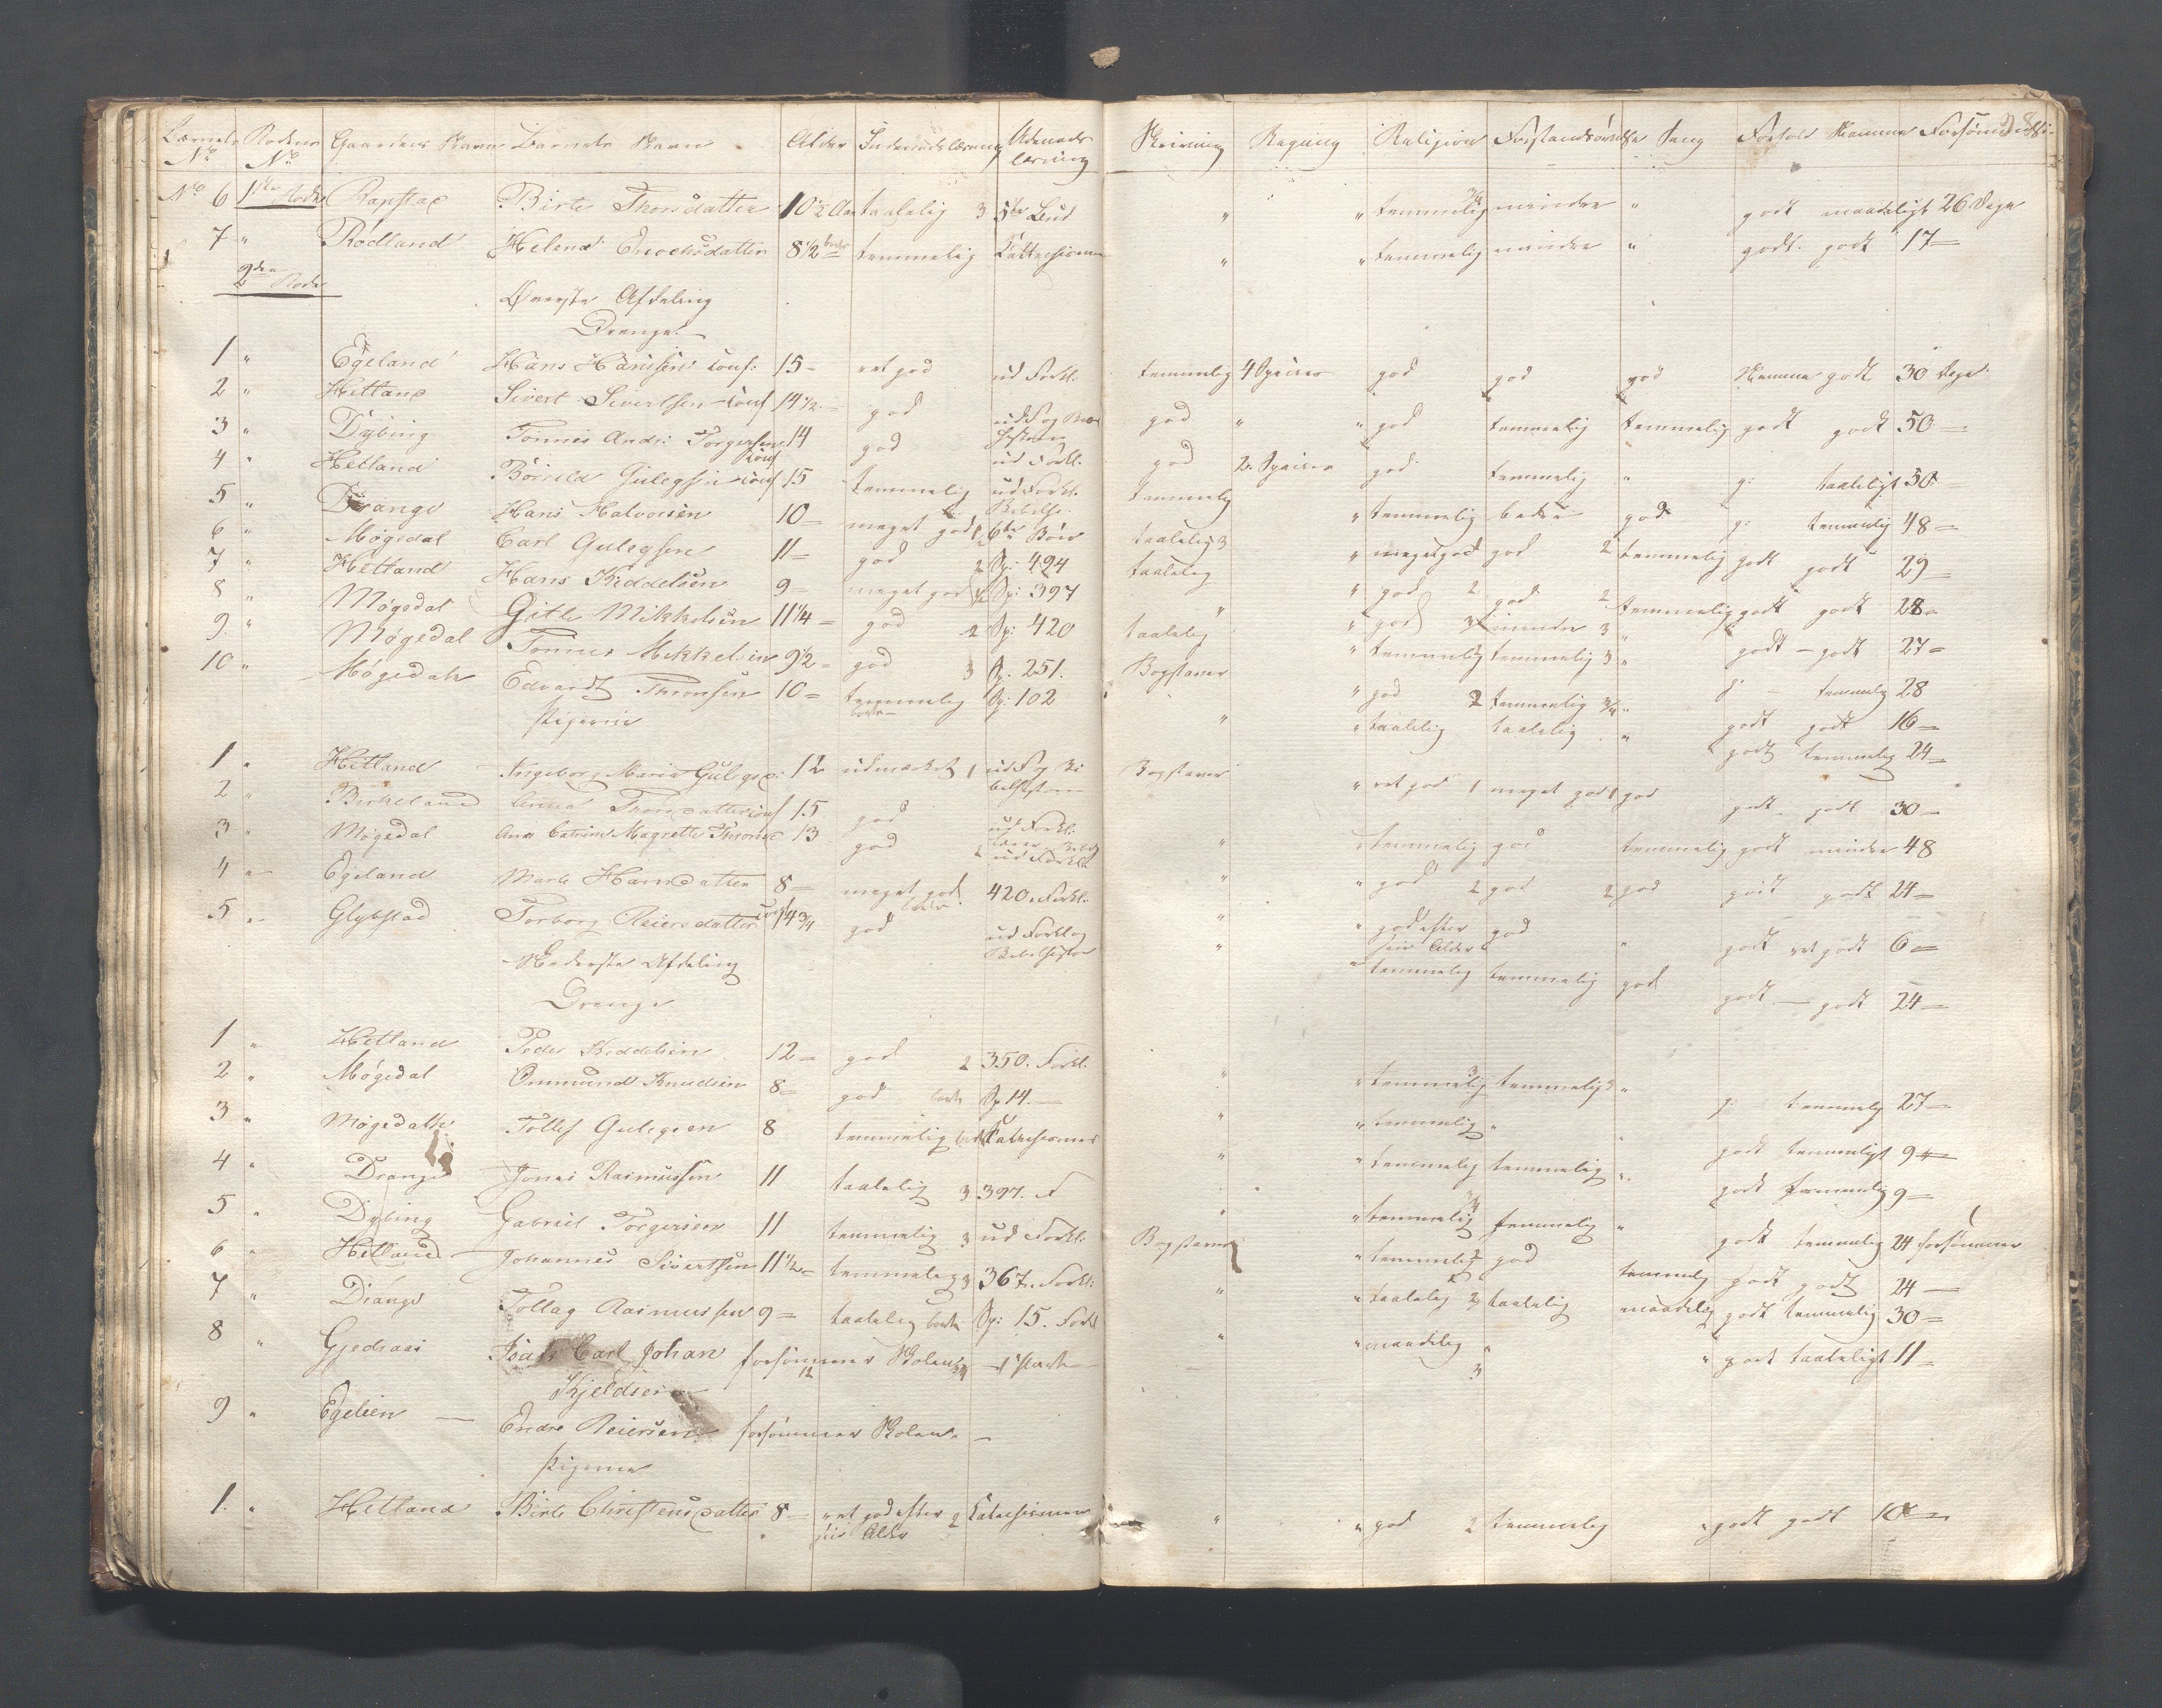 Barnets No Rodens No Gaardens Navn Barnets Navn Alder Indenadslæsning Udenads læsning Skrivning Regning Religion Forstandsøvelse Sang Forhold Fremme Forsømmelse 28
No 6 1ste Rode Rapstad Birte Thorsdatter 10 1/2 Aar taalelig 3 5te Bud " " temmelig 3/4 mindre " godt maadeligt 26 Dage
7 " Rødland Helena Enochsdatter 8 1/2 temmelig Cattechismen " " temmelig mindre " godt godt 17
2den Rode
Øverste Afdeling
Drenge
1 " Egeland Hans Hanssen conf: 15 ret god ud Forkl. temmelig 4 Species god god god godt 30 Dage
2 " Hetland Sivert Sivertsen conf 14 1/2 god god " " god temmelig temmelig godt godt 50
3 " Dybing Tønnes Andr: Torgersen conf 14 god ud Forkl. god 2 Species god temmelig " g: taaleligt 50
4 " Hetland Gulegsen conf 15 temmelig ud Forkl. temmelig " temmelig bedre god g: temmelig 48
5 " Drange Hans Halvorsen 10 meget god 6te Bøn taalelig 3 " meget god god 2 temmelig godt godt 29
6 " Møgedal Carl Gulegsen 11 god 2 Sp: 494 taalelig " god 2 god 2 temmelig godt godt 28
7 " Hetland Hans Keddelsen 9 meget god Sp: 397 " " god 3 mindre 3 " godt godt 27
8 " Møgedal Gitle Mikkelsen 11 1/4 god 2 Sp: 420 taalelig " temmelig temmelig 3 " g: temmelig 28
9 " Møgedal Tønnes Mikkelsen 9 1/2 god 3 Sp. 251. Bogstaver " god 2 temmelig 3/4 " godt godt 16
10 " Møgedal Edvardt Thronsen 10 temmelig Sp: 102 " " taalelig taalelig " godt temmelig 24
Pigerne
1 " Hetland Ingeborg Maria Gulegsd: 12 udmærket 1 ud F og Bi belhistorie Bogstaver " ret god 1 meget god 1 god godt godt 30
2 " Birkeland Anna Tronsdatter conf 15 god ud Forkl: " temmelig god temmelig godt mindre 48
3 " Møgedal Ane Catrine Magrette Thronsd 13 god 2 ud Forkl: " " god 2 god 2 god godt godt 24
4 " Egeland Marte Hansdatter 8 meget god 420. Forkl: " " god efter sin Alder god " godt ret godt 6
5 " Glybstad Torborg Reiersdatter conf 14 3/4 god ud Forkl og Bibelhistor " " temmelig temmelig god godt godt 24
Nederste Afdeling
Drenge
1 " Hetland Peder Keddelsen 12 god 2 350. Forkl. " " temmelig 3 temmelig " g: temmelig 27
2 " Møgedal Ommund Knudsen 8 god Sp 14. " " temmelig " " godt temmeligt 9
3 " Møgedal Tollef Gulegsen 8 temmelig Catechismen " " temmelig temmelig " godt temmelig 9
4 " Drange Jonas Rasmussen 11 taalelig 3 397. F " " temmelig 3/4 temmelig " godt temmelig 24 forsømmer
5 " Dybing Gabriel Torgersen 11 temmelig 3 ud Forkl: Bogstaver " temmelig 2 god temmelig godt godt 24
6 " Hetland Johannes Sivertsen 11 1/2 temmeleg 3 367. Forkl: " " taalelig 2 taalelig maadelig godt temmelig 30
7 " Drange Tollag Rasmussen 9 taalelig Sp: 15. Forkl " " maadelig " " godt taaleligt 11
8 " Gjedraas Isak Carl Johan forsømmer Skolen 3
Kjeldsen
9 " Egelien Endre Reiersen forsømmer Skolen
Pigerne
1. " Hetland Birte Christensdatter 8 ret god efter sin Alder 2 Catechismen " " god 2 temmelig " godt godt 10